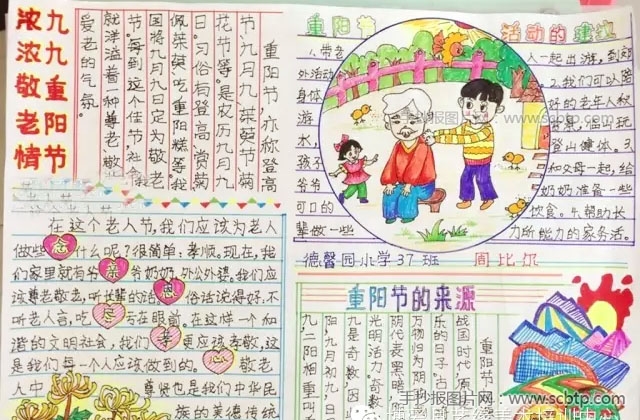 九九重阳节
浓浓敬老情
重阳节,亦称登高
节、九月九、茱萸节、菊
花节等,是农历九月九
日。习俗有登高、赏菊
佩茱萸、吃重阳糕等我
国将九月九日定为敬老
节。每到这个佳节社会
就洋溢着一种尊老敬
爱老的气氛。
在这个老人节,我们应该为老人
做些 什么呢?很简单:孝顺。现在,我
们家里就有爷爷奶奶,外公外婆。我们应
该尊老敬老,听长辈的话。俗话说得好,不
听老人言,吃亏在眼前。在这样一个和
谐的文明社会,我们 更应该孝敬,这
是我们每一个人应该做到的。 敬老
人中 尊贤也是我们中华民
族的美德传统
念
亲
恩
孝
心
重阳节
活动的建议
1.带老
人一起出游,到郊
外活动
2.我们可以陪
身体
好的老年人秋
游
水
登山健体。3.
孩子
和父母一起,给
爷爷
奶奶准备一些
可口的
饮食。4.帮助长
辈做一些
力所能力的家务活。
德馨园小学37班
周比尔
重阳节的来源
重阳节
战国时代原
乐的日子。古
万物归为阴
阴代表黑暗
光明活力。奇数
九是奇数,因
阳九月初九
九二阳相重叫
手抄报图片网:www.scbtp.com